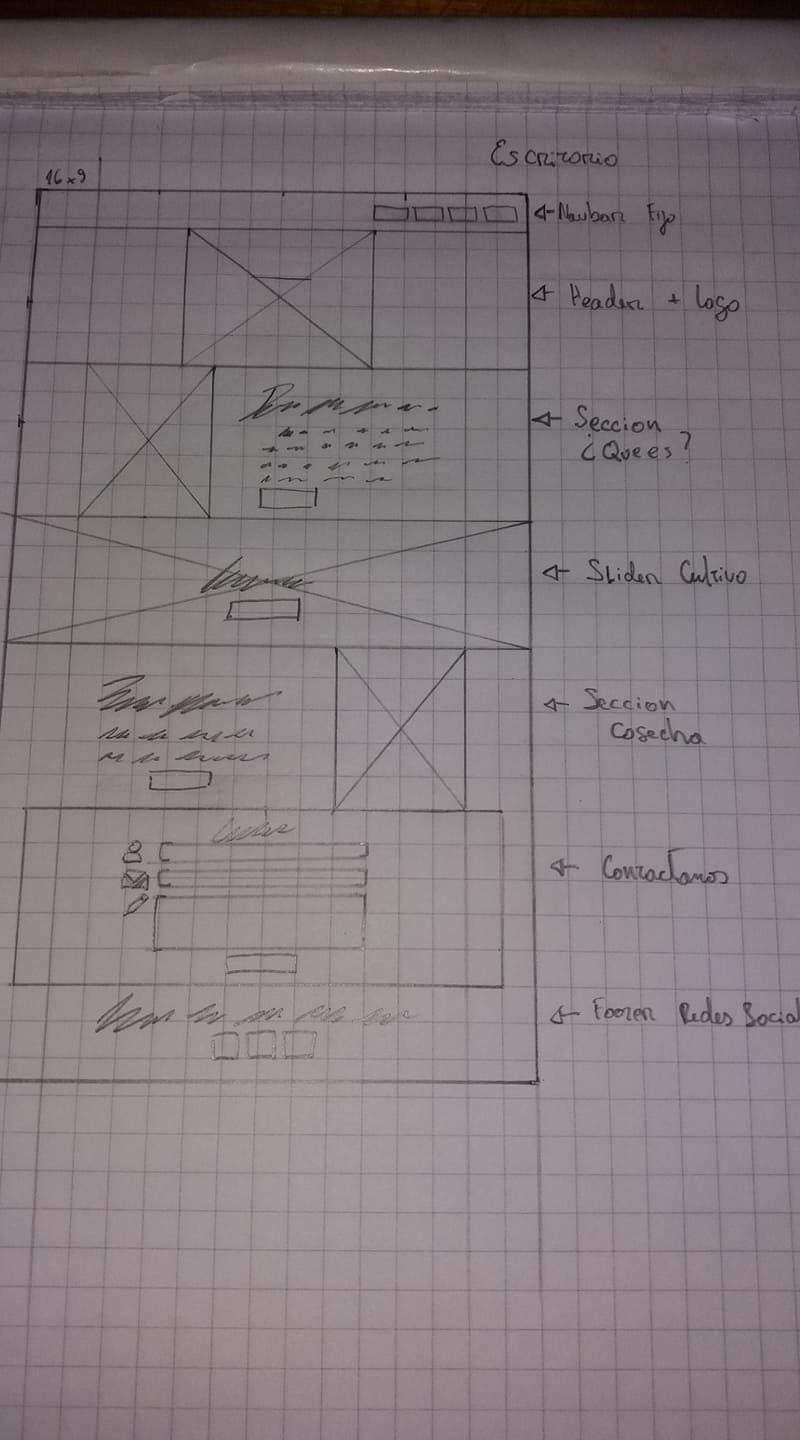 Escritorio
16x9
Navbar Fijo
Header + Logo
Seccion
¿Que es?
Slider Cultivo
Seccion
Cosecha
Contactanos
Footer Redes Social